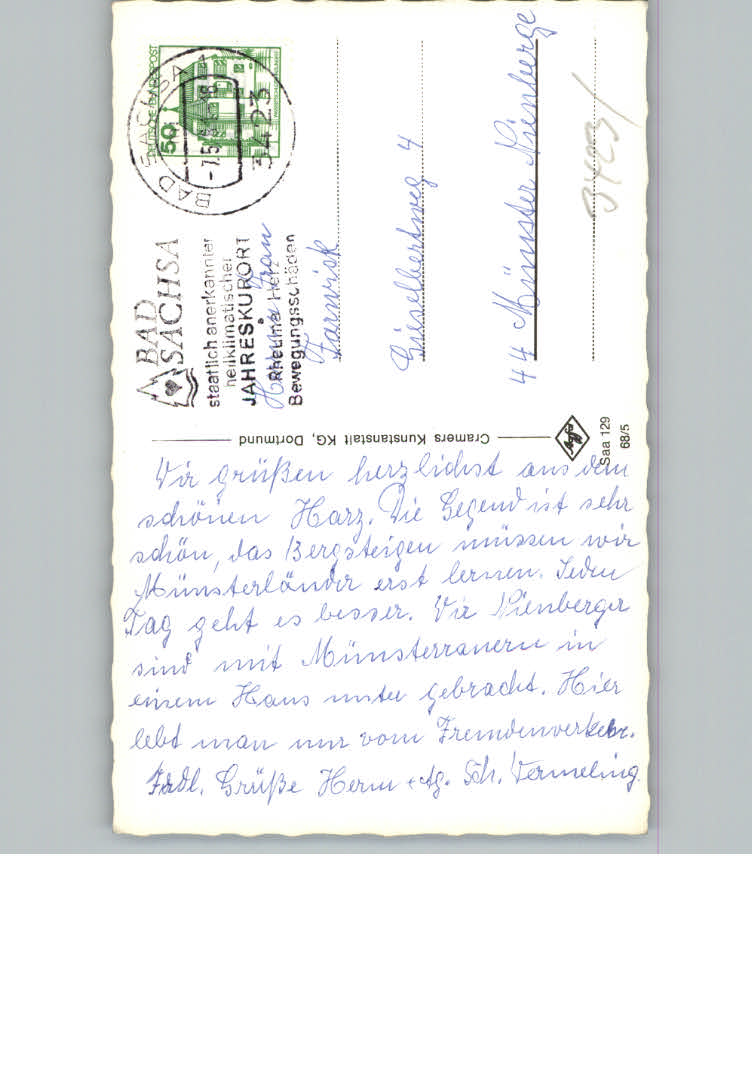 Wir grüßen herzlichst aus dem
schönen Harz. Die Gegend ist sehr
schön, das Bergsteigen müssen wir
Münsterländer erst lernen. Jeden
Tag geht es besser. Wir Nienberger
sind mit Münsterranern in
einem Haus unter gebracht. Hier
lebt man nur vom Fremdenverkehr.
Frdl. Grüße Herm + Ag. Sch. Vermeling
Cramers Kunstanstalt KG, Dortmund
Agfa
Saa 129
68/5
DEUTSCHE BUNDESPOST
50
BAD SACHSA 1
-7.5.
18
3423
BAD
SACHSA
staatlich anerkannter
heilklimatischer
JAHRESKURORT
Rheuma Herz
Bewegungsschäden
Frau
Farwick
Gieselbertweg 4
44 Münster Nienberge
3423/